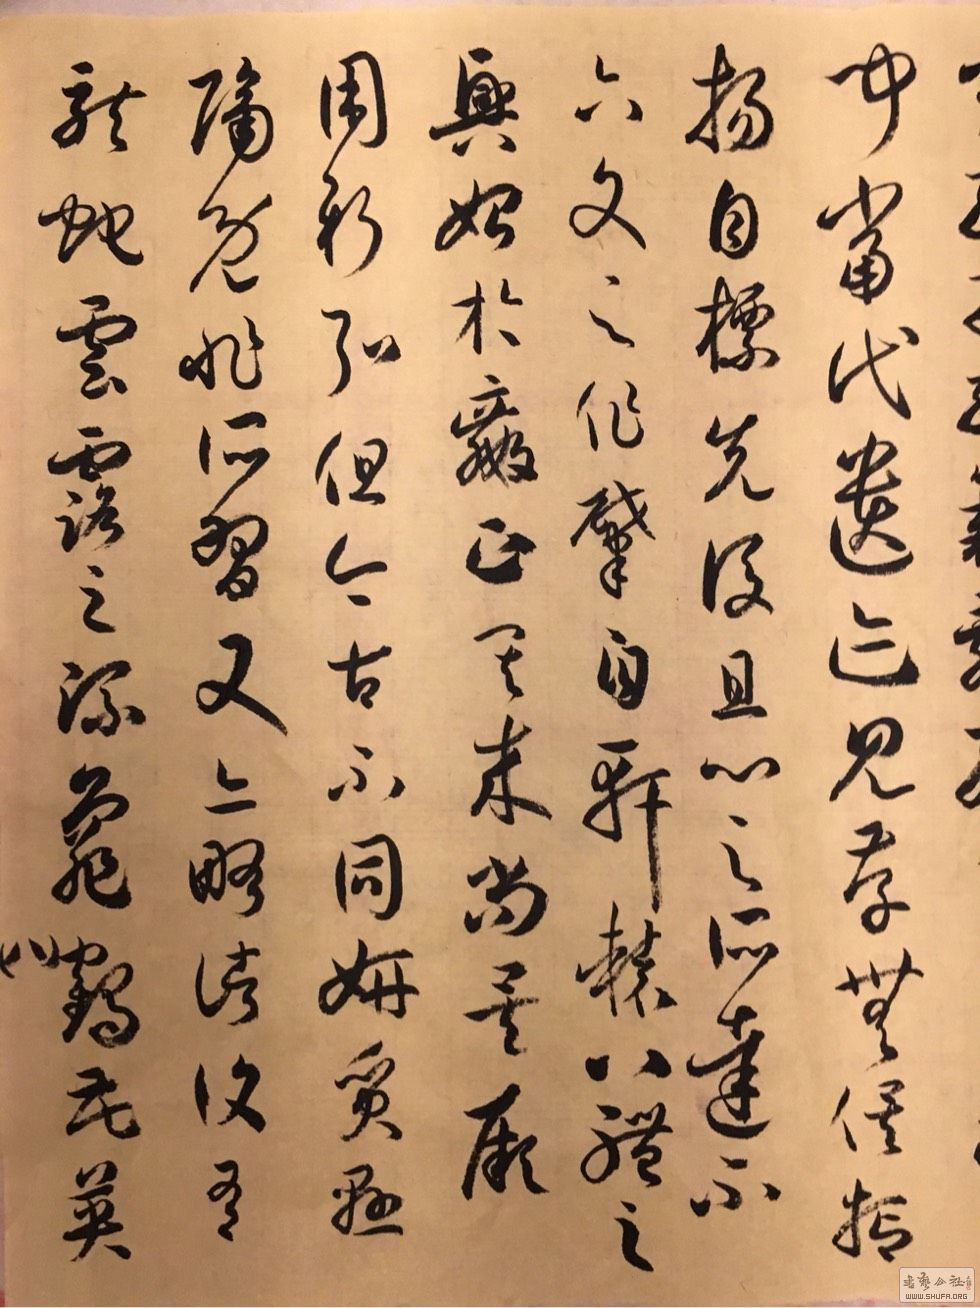 聞當代遺迹見存無俟抽
揚自標先後且心之所達不
六文之作肇自軒轅八體之
興始於嬴正其來尚矣厥
用斯弘但今古不同妍質懸
隔既非所習又亦略諸復有
龍蛇雲露之流龜鶴花英
书艺公社
WWW.SHUFA.ORG